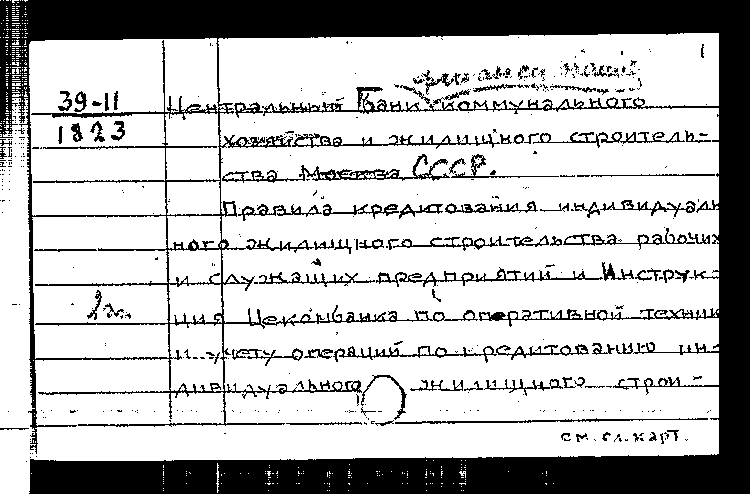 1
финанси
39-11
1823
Центральный Банк коммунального
хозяйства и жилищного строитель-
ства Москва СССР.
Правила кредитования индивидуаль
ного жилищного строительства рабочих
и служащих предприятий и Инструк-
2 эк.
ция Цекомбанка по оперативной техник
и учету операций по кредитованию ин-
дивидуального жилищного строи-
см. сл. карт.